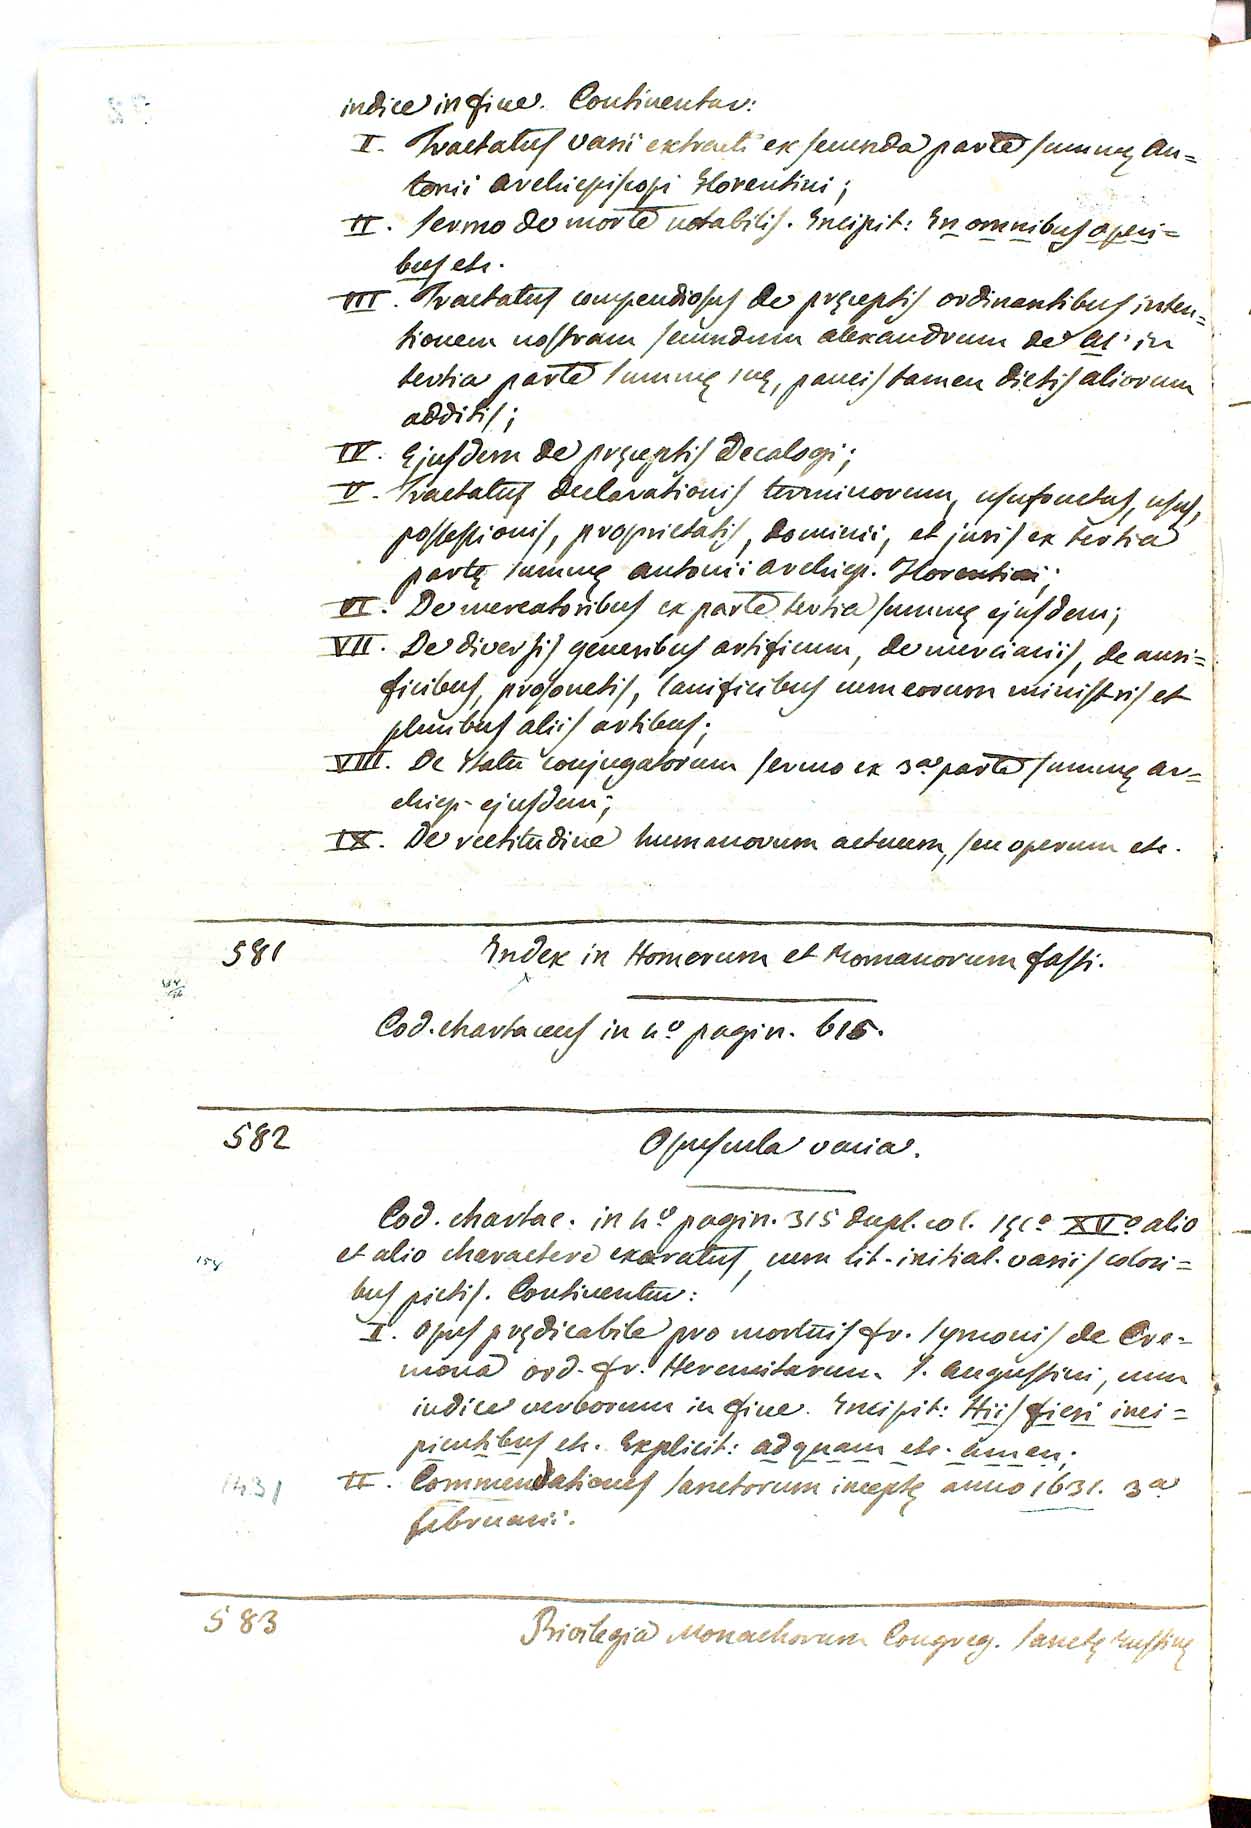 indice in fine. Continentur:
I. Tractatus varii extracti ex secunda parte summę An=
tonii Archiepiscopi Florentini;
II. Sermo de morte notabilis. Incipit: In omnibus operi=
bus etc.
III. Tractatus compendiosus de pręceptis ordinantibus inten=
tionem nostram secundum Alexandrum de Al' in
tertia parte summę suę, paucis tamen dictis aliorum
additis;
IV. Ejusdem de pręceptis Decalogi;
V. Tractatus declarationis terminorum, usufructus, usus,
possessionis, proprietatis, dominii, et juris ex tertia
partę summę Antonii Archiep. Florentini;
VI. De mercatoribus ex parte tertia summę ejusdem;
VII. De diversis generibus artificum, de merciariis, de auri=
ficibus, proxonetis, lanificibus cum eorum ministris et
pluribus aliis artibus;
VIII. De statu conjugatorum sermo ex 3.a parte summę Ar=
chiep. ejusdem;
IX. De rectitudine humanorum actuum, seu operum etc.
581 Index in Homerum et Romanorum fasti.
Cod. chartaceus in 4.o pagin. 615.
582 Opuscula varia.
Cod. chartac. in 4.o pagin. 315 dupl. col. sęc.o XV.o alio
et alio charactere exaratus, cum lit. initial. variis colori=
bus pictis. Continentur:
158
I. Opus prędicabile pro mortuis fr. Symonis de Cre=
mona ord. fr. Heremitarum S. Augustini, cum
indice verborum in fine. Incipit: Hiis fieri inci=
pientibus etc. Explicit: ad quam etc. amen;
1431 II. Commendationes sanctorum inceptę anno 1631. 3.a
februarii.
583 Privilegia Monachorum Congreg. Sanctę Justinę